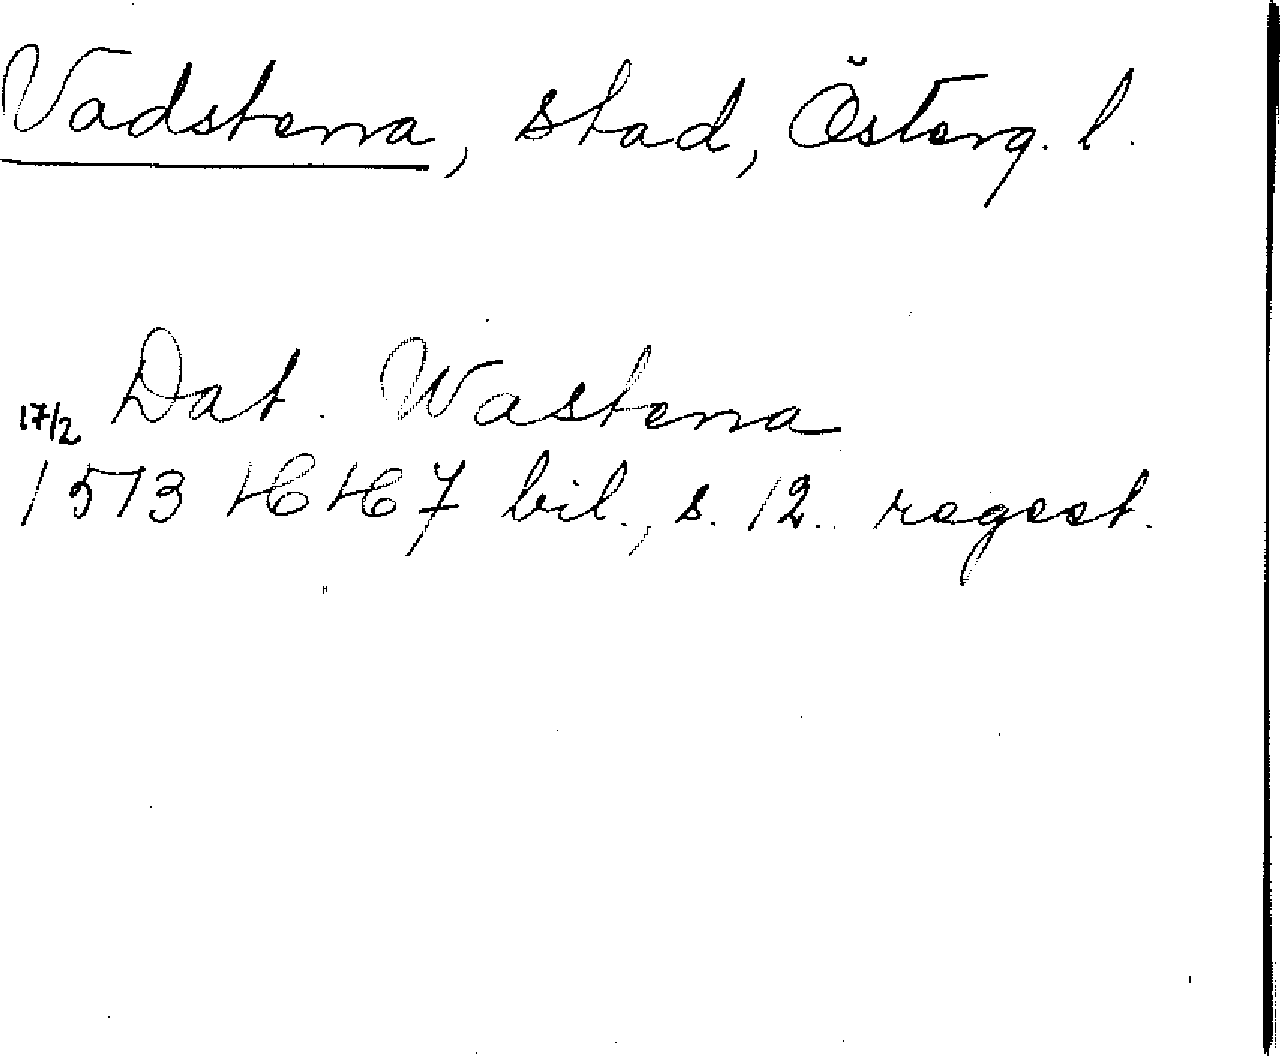 Vadstena, stad, Österg. l.
Dat. Wastena
17/2 1573 HH 7 bil., s. 12. regest.